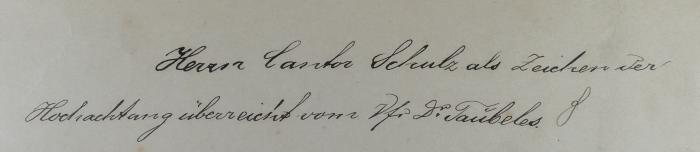 Herrn Cantor Schulz als Zeichen der
Hochachtung überreicht vom Vfr Dr. Taubeles.